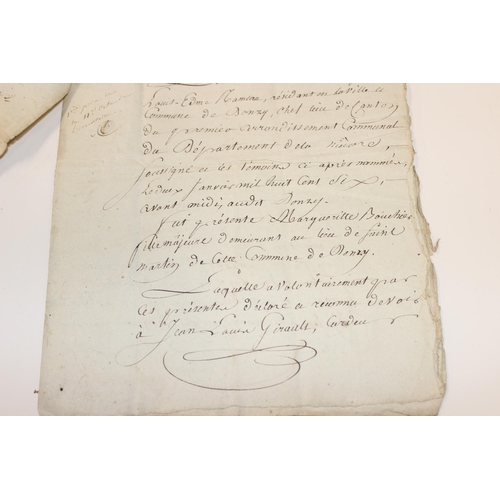 Louis Edme Rameau, résidant en la ville et
Commune de Donzy, chef lieu de Canton
du premier arrondissement Communal
du Département de la nièvre,
Soussigné et les témoins ci après nommés,
Le deux Janvier mil huit Cent Six,
avant midi, audit Donzy.
fut présente Marguerite Bouchier
fille majeure demeurant au lieu de Saint
martin de Cette Commune de Donzy.
Laquelle a volontairement par
Ces présentes déclaré et reconnu devoir
à Jean Louis Girault,